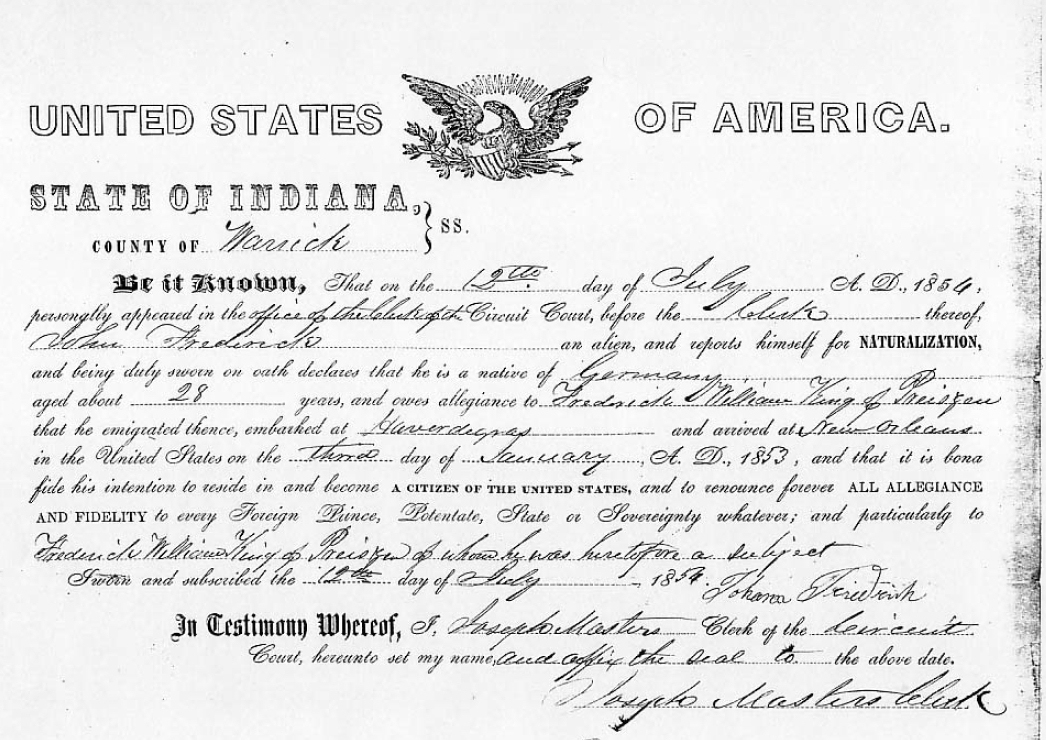 UNITED STATES OF AMERICA.
STATE OF INDIANA,
COUNTY OF Warrick } SS.
Be it Known, That on the 12th day of July A. D., 1854,
personglly appeared in the office of the Clerk of the Circuit Court, before the Clerk thereof,
John Frederick an alien, and reports himself for NATURALIZATION,
and being duly sworn on oath declares that he is a native of Germany
aged about 28 years, and owes allegiance to Frederick William King of Preiszen
that he emigrated thence, embarked at Haverdegras and arrived at New Orleans
in the United States on the third day of January, A. D., 1853, and that it is bona
fide his intention to reside in and become A CITIZEN OF THE UNITED STATES, and to renounce forever ALL ALLEGIANCE
AND FIDELITY to every Foreign Prince, Potentate, State or Sovereignty whatever; and particularlg to
Frederick William King of Preiszen of whom he was heretofore a subject
Sworn and subscribed the 12th day of July 1854. Johann Friedrich
In Testimony Whereof, I, Joseph Masters Clerk of the Circuit
Court, hereunto set my name, and affix the seal to the above date.
Joseph Masters Clerk